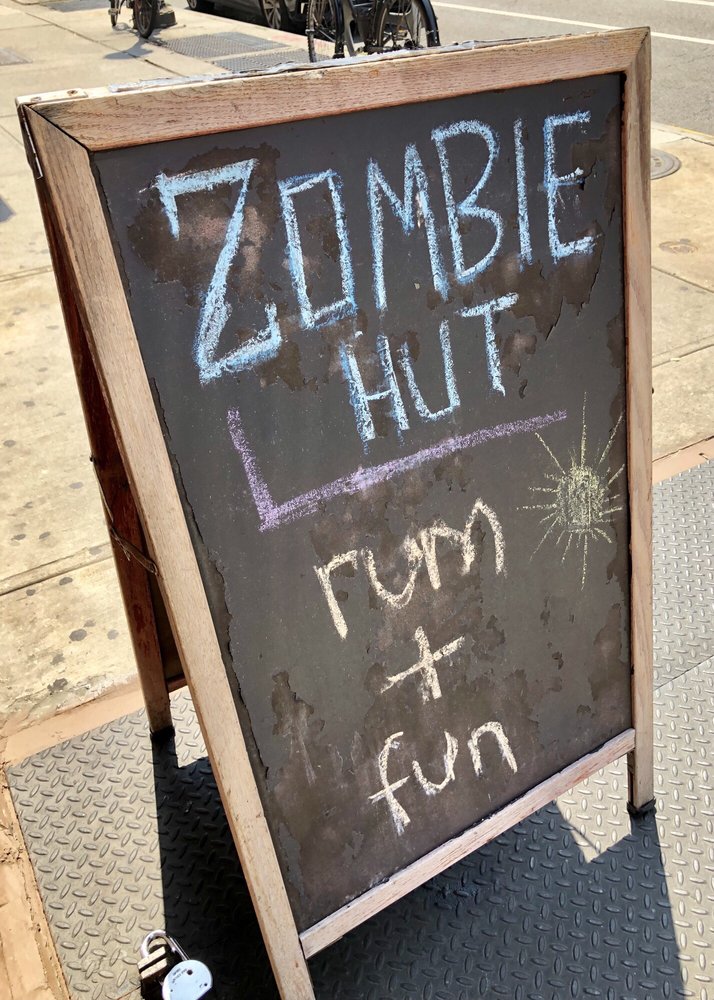 ZOMBIE
HUT
rum
+
fun